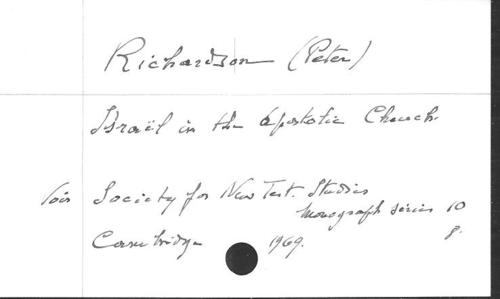 Richardson (Peter)
Israël in the Apostolic Church.
Voir Society for New Test. Studies
Monograph series 10
Cambridge 1969. 8.